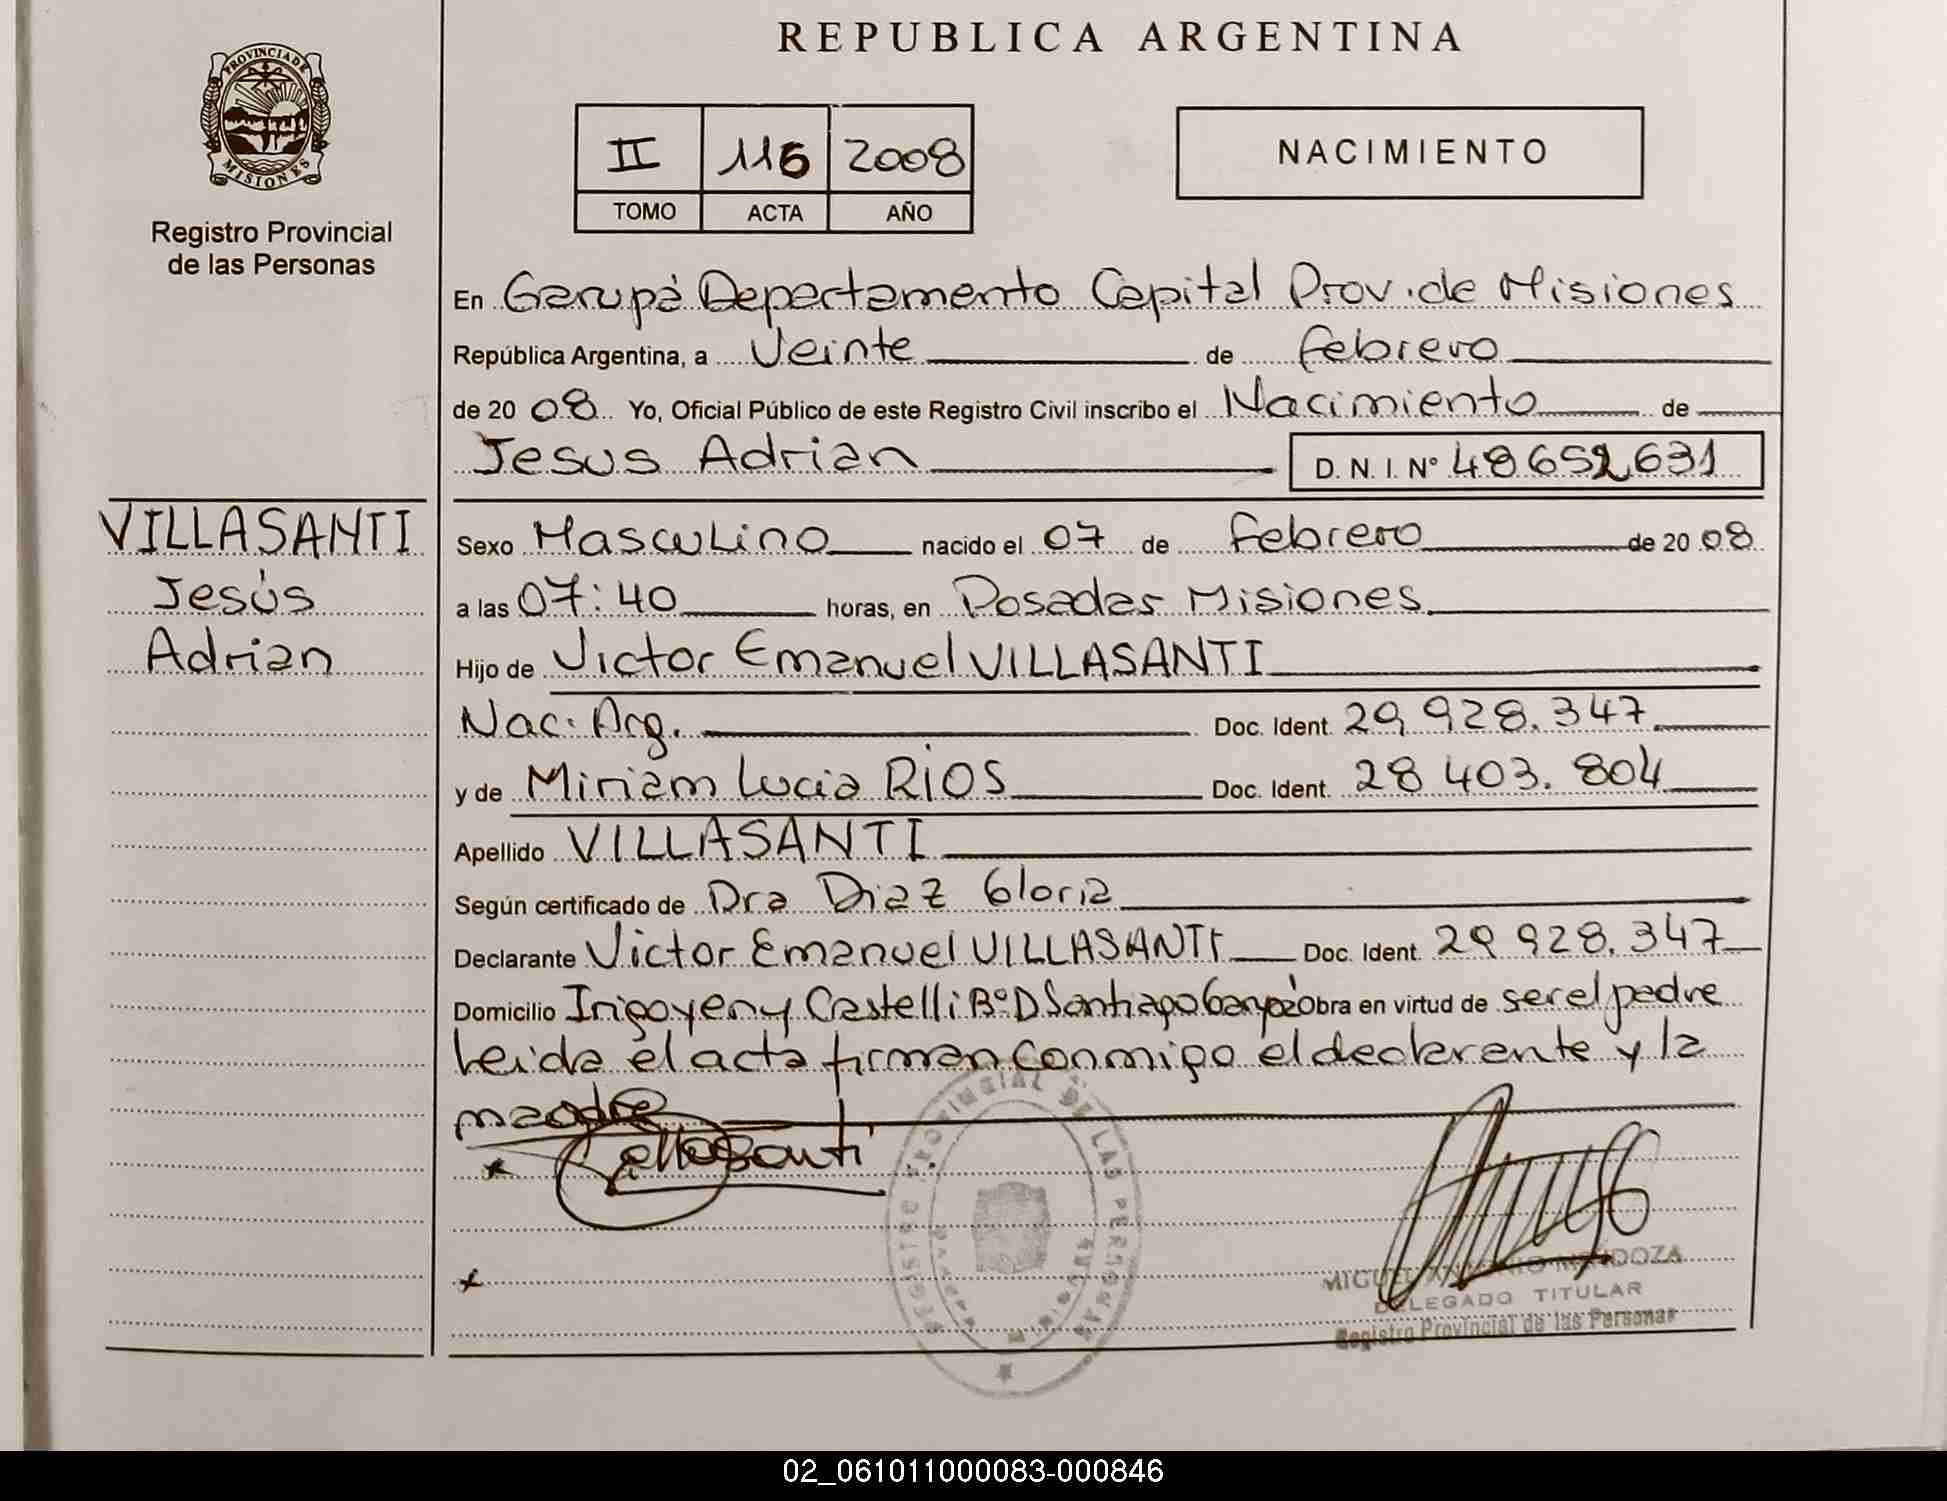 REPUBLICA ARGENTINA
PROVINCIA DE
MISIONES
Registro Provincial
de las Personas
II 116 2008
TOMO ACTA AÑO
NACIMIENTO
En Garupá Departamento Capital Prov. de Misiones
República Argentina, a Veinte de febrero
de 20 08 Yo, Oficial Público de este Registro Civil inscribo el Nacimiento de
Jesus Adrian D. N. I. N° 48652631
VILLASANTI
Jesús
Adrian
Sexo Masculino nacido el 07 de febrero de 20 08
a las 07:40 horas, en Posadas Misiones
Hijo de Victor Emanuel VILLASANTI
Nac. Arg. Doc. Ident. 29.928.347
y de Miriam Lucia RIOS Doc. Ident. 28 403. 804
Apellido VILLASANTI
Según certificado de Dra Diaz Gloria
Declarante Victor Emanuel VILLASANTI Doc. Ident. 29 928.347
Domicilio Irigoyen y Castelli B° D Santiago Garupá Obra en virtud de ser el padre
Leida el acta firman conmigo el declarante y la
madre
Villasanti
REGISTRO PROVINCIAL DE LAS PERSONAS
MIGUEL ANTONIO MENDOZA
DELEGADO TITULAR
Registro Provincial de las Personas
02_061011000083-000846